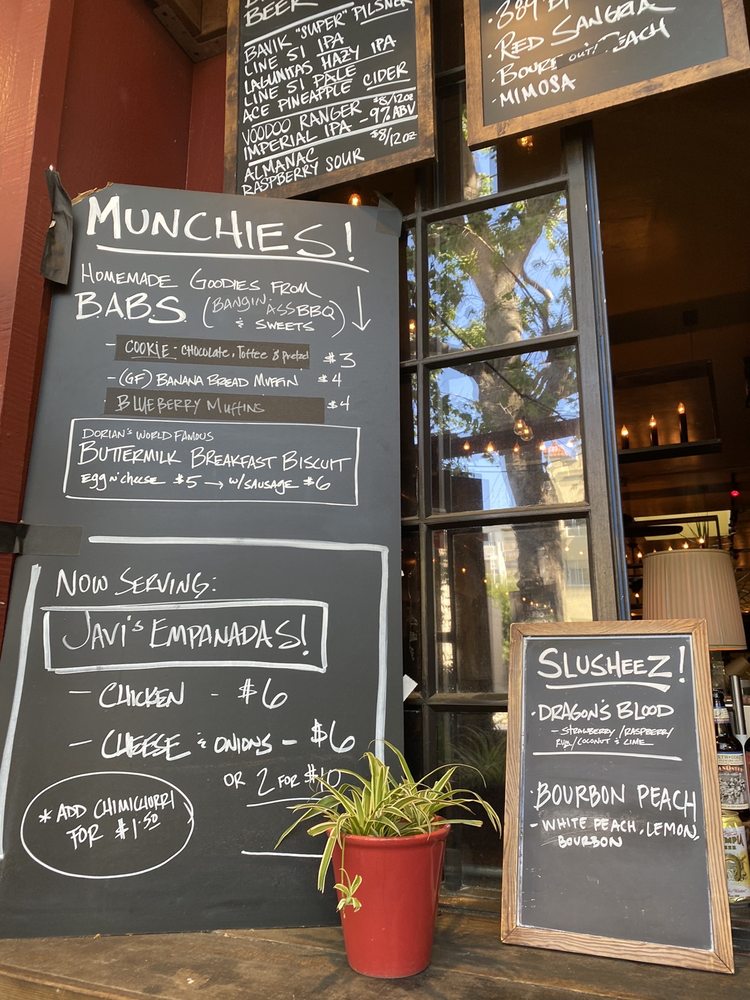 BEER
BAVIK "SUPER" PILSNER
LINE 51 IPA
LAGUNITAS HAZY IPA
LINE 51 PALE
ACE PINEAPPLE CIDER
$8/12oz
VOODOO RANGER
IMPERIAL IPA - 9% ABV
$8/12oz
ALMANAC
RASPBERRY SOUR
· RED SANGRIA
PEACH
· MIMOSA
MUNCHIES!
HOMEMADE GOODIES FROM
BABS (BANGIN' ASS BBQ
& SWEETS)
COOKIE - CHOCOLATE, TOFFEE & PRETZEL $3
- (GF) BANANA BREAD MUFFIN $4
BLUEBERRY MUFFINS $4
DORIAN'S WORLD FAMOUS
BUTTERMILK BREAKFAST BISCUIT
EGG N' CHEESE $5 → W/SAUSAGE $6
NOW SERVING:
JAVI'S EMPANADAS!
- CHICKEN - $6
- CHEESE & ONIONS - $6
OR 2 FOR $10
* ADD CHIMICHURRI
FOR $1.50
SLUSHEEZ!
· DRAGON'S BLOOD
- STRAWBERRY/RASPBERRY
RUM/COCONUT & LIME
· BOURBON PEACH
- WHITE PEACH, LEMON,
BOURBON